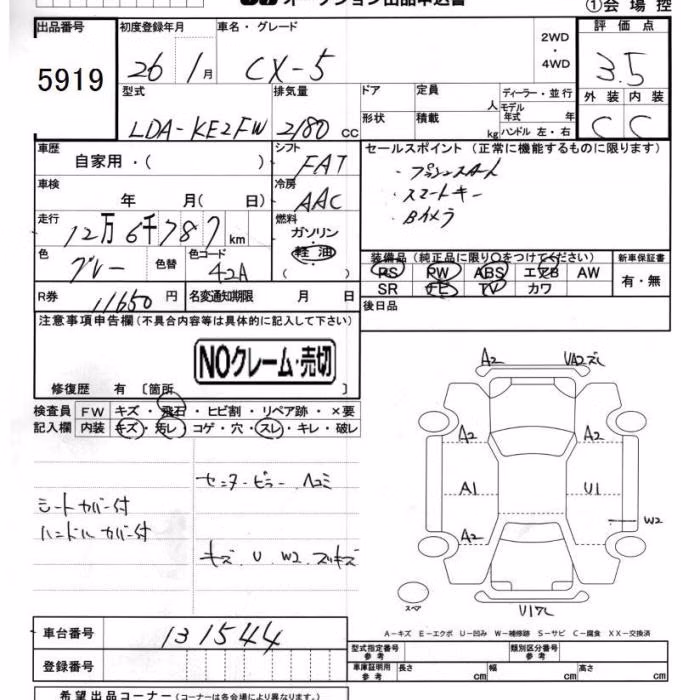 オークション出品申込書 ①会場控
出品番号 初度登録年月 車名・グレード 2WD・4WD 評価点
5919 26年1月 CX-5 3.5
型式 排気量 ドア 定員 人 ディーラー・並行 外装 内装
LDA-KE2FW 2180cc 形状 積載 kg モデル年式 年 ハンドル 左・右 C C
車歴 自家用・( ) シフト FAT セールスポイント(正常に機能するものに限ります)
車検 年 月( 日) 冷房 AAC ・プッシュスタート
・スマートキー
・Bカメラ
走行 12万6千787km 燃料 ガソリン 軽油
色 グレー 色替 色コード 42A 装備品(純正品に限り○をつけてください) 新車保証書
PS PW ABS エアB AW 有・無
SR TV カワ
R券 11650円 名変通知期限 月 日 後日品
注意事項申告欄(不具合内容等は具体的に記入して下さい)
NOクレーム・売切
修復歴 有〔箇所 〕
検査員 FW キズ・飛石・ヒビ割・リペア跡・×要
記入欄 内装 キズ・汚レ・コゲ・穴・スレ・キレ・破レ
センターピラー ヘコミ
シートカバー付
ハンドルカバー付
キズ.U.W2.スリキズ
A2 VA2ズレ
A2 A2
A1 U1
W2
A2
スペア U1ズレ
A-キズ E-エクボ U-凹み W-補修跡 S-サビ C-腐食 XX-交換済
車台番号 131544
型式指定番号 参考 類別区分番号 参考
登録番号 車庫証明用 参考 長さ cm 幅 cm 高さ cm
希望出品コーナー(コーナーは各会場により異なります。)